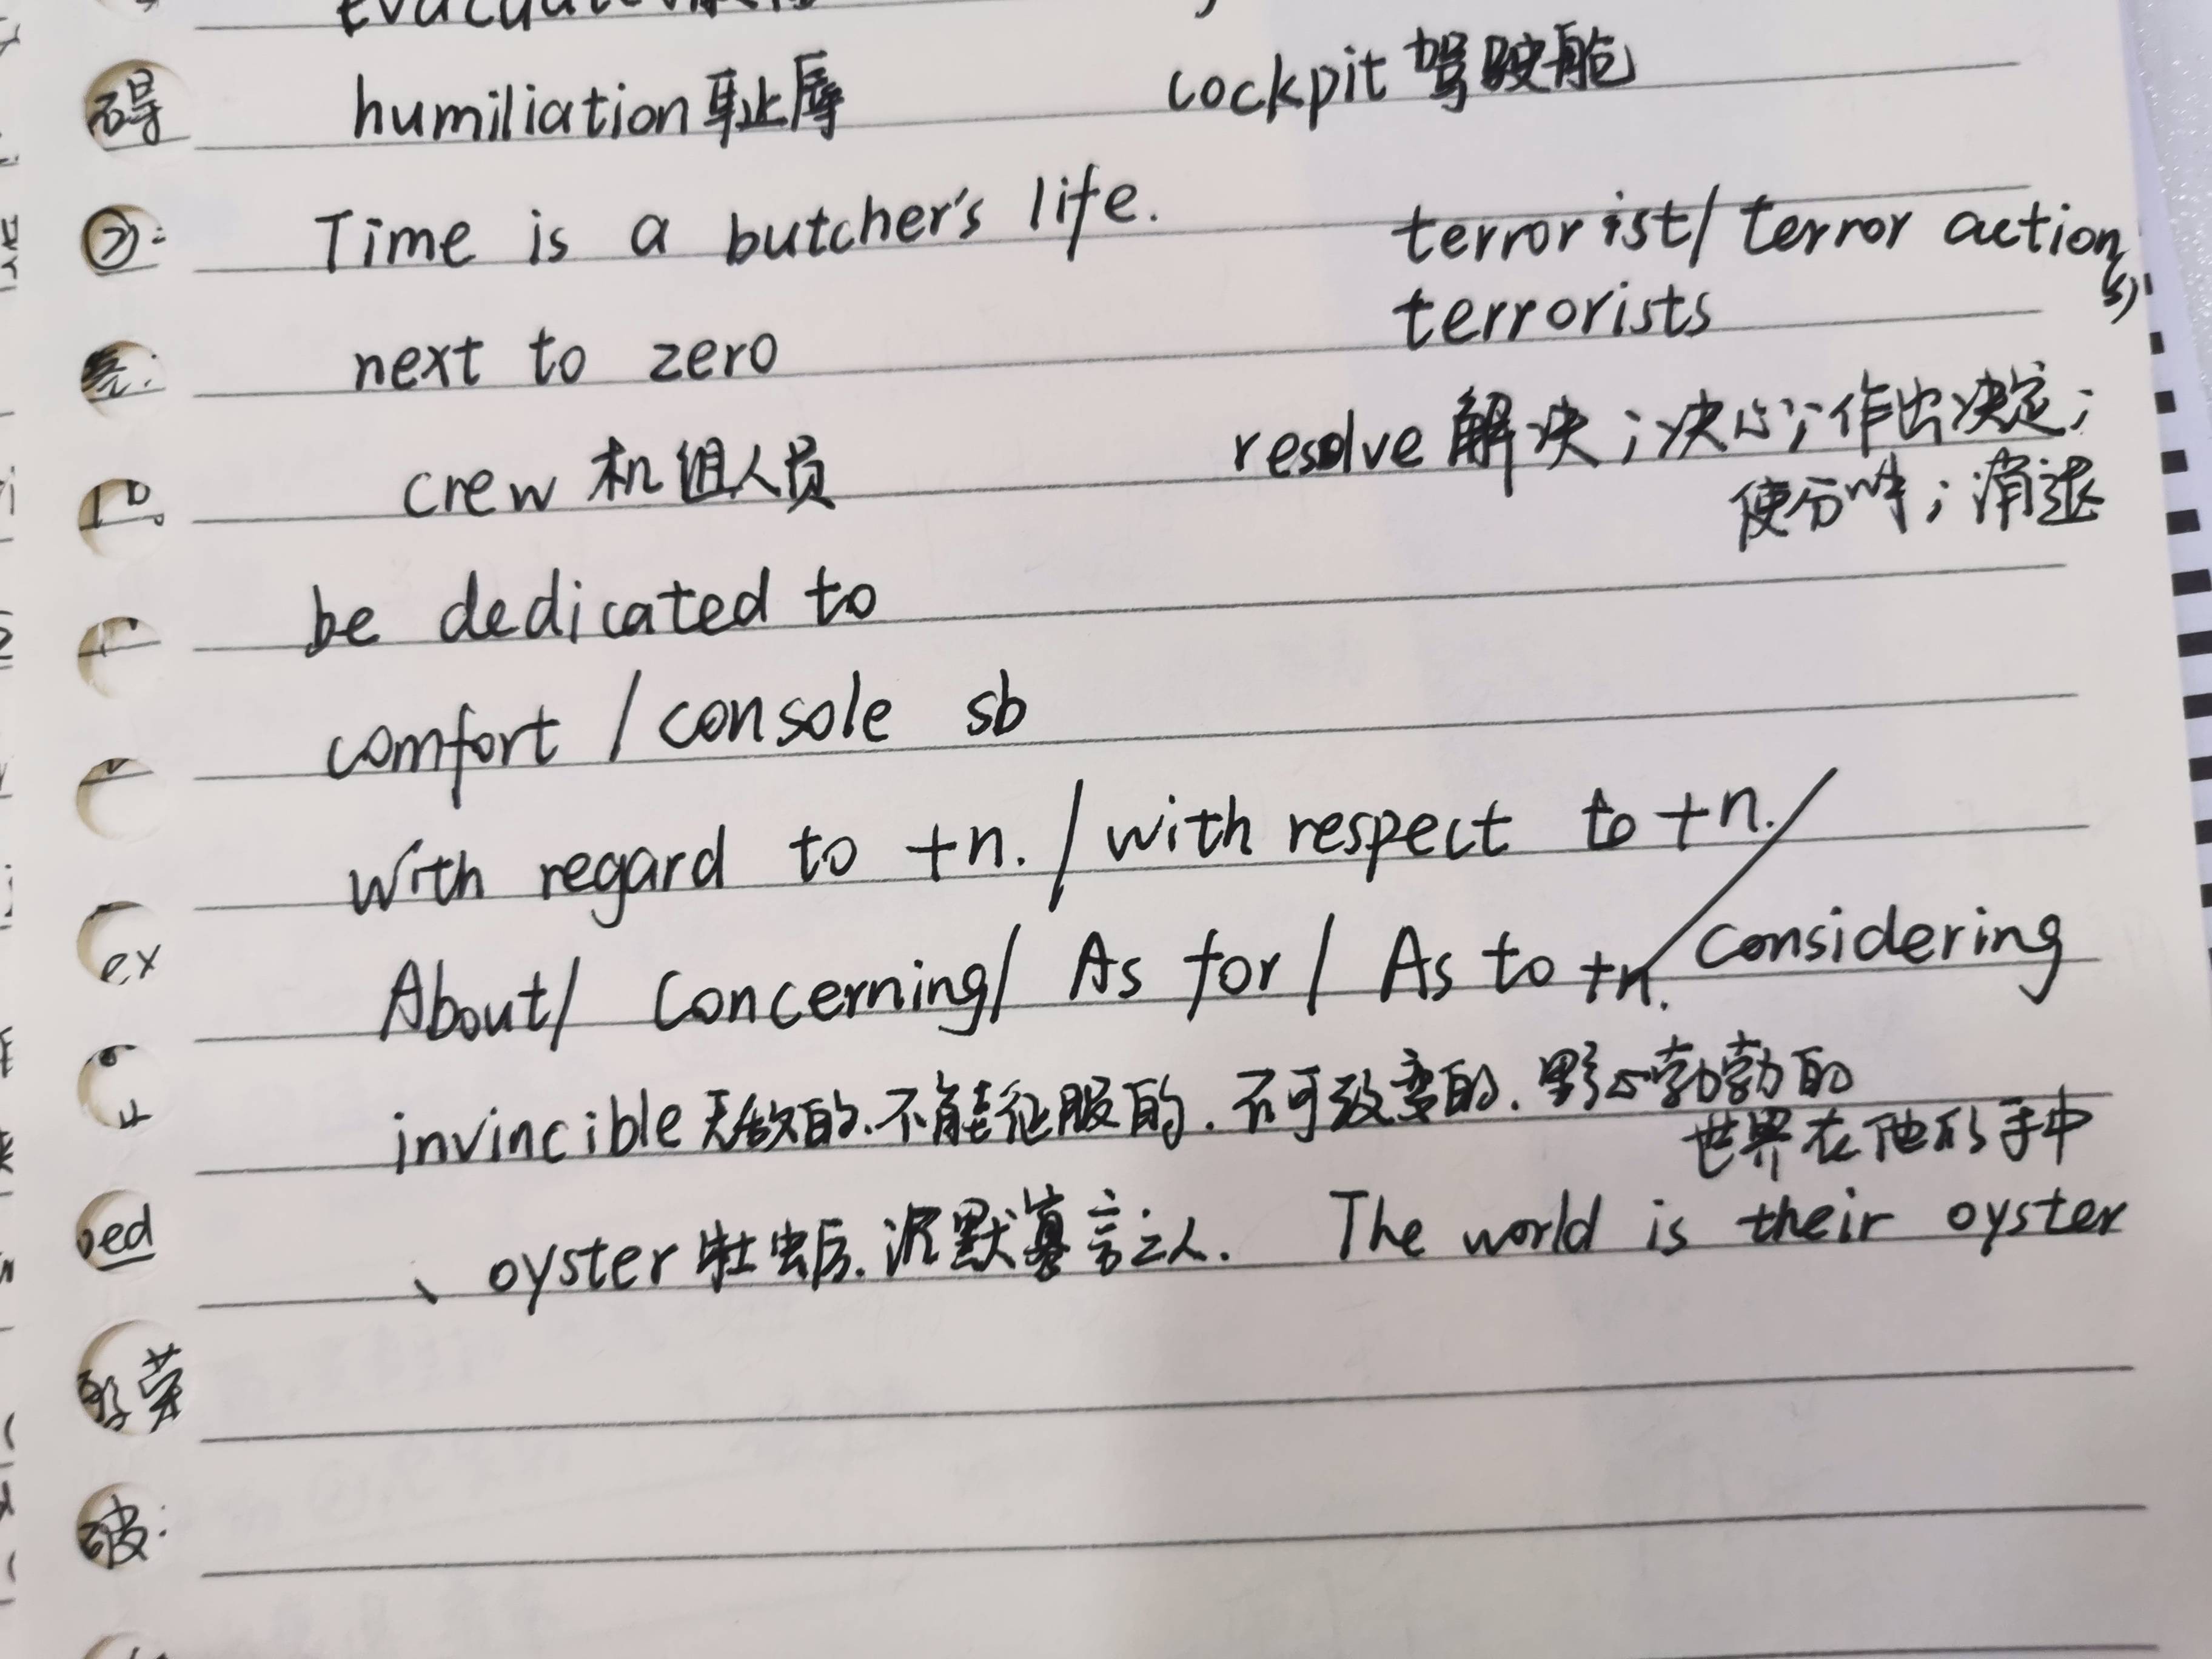 humiliation 耻辱 cockpit 驾驶舱
Time is a butcher's life. terrorist/ terror action(s)
next to zero terrorists
crew 机组人员 resolve 解决；决心；作出决定；
使分解；消退
be dedicated to
comfort / console sb
With regard to +n. / with respect to +n. /
About/ Concerning/ As for / As to +n. Considering
invincible 无敌的.不能征服的.不可改变的.野心勃勃的
世界在他的手中
、oyster 牡蛎.沉默寡言之人. The world is their oyster